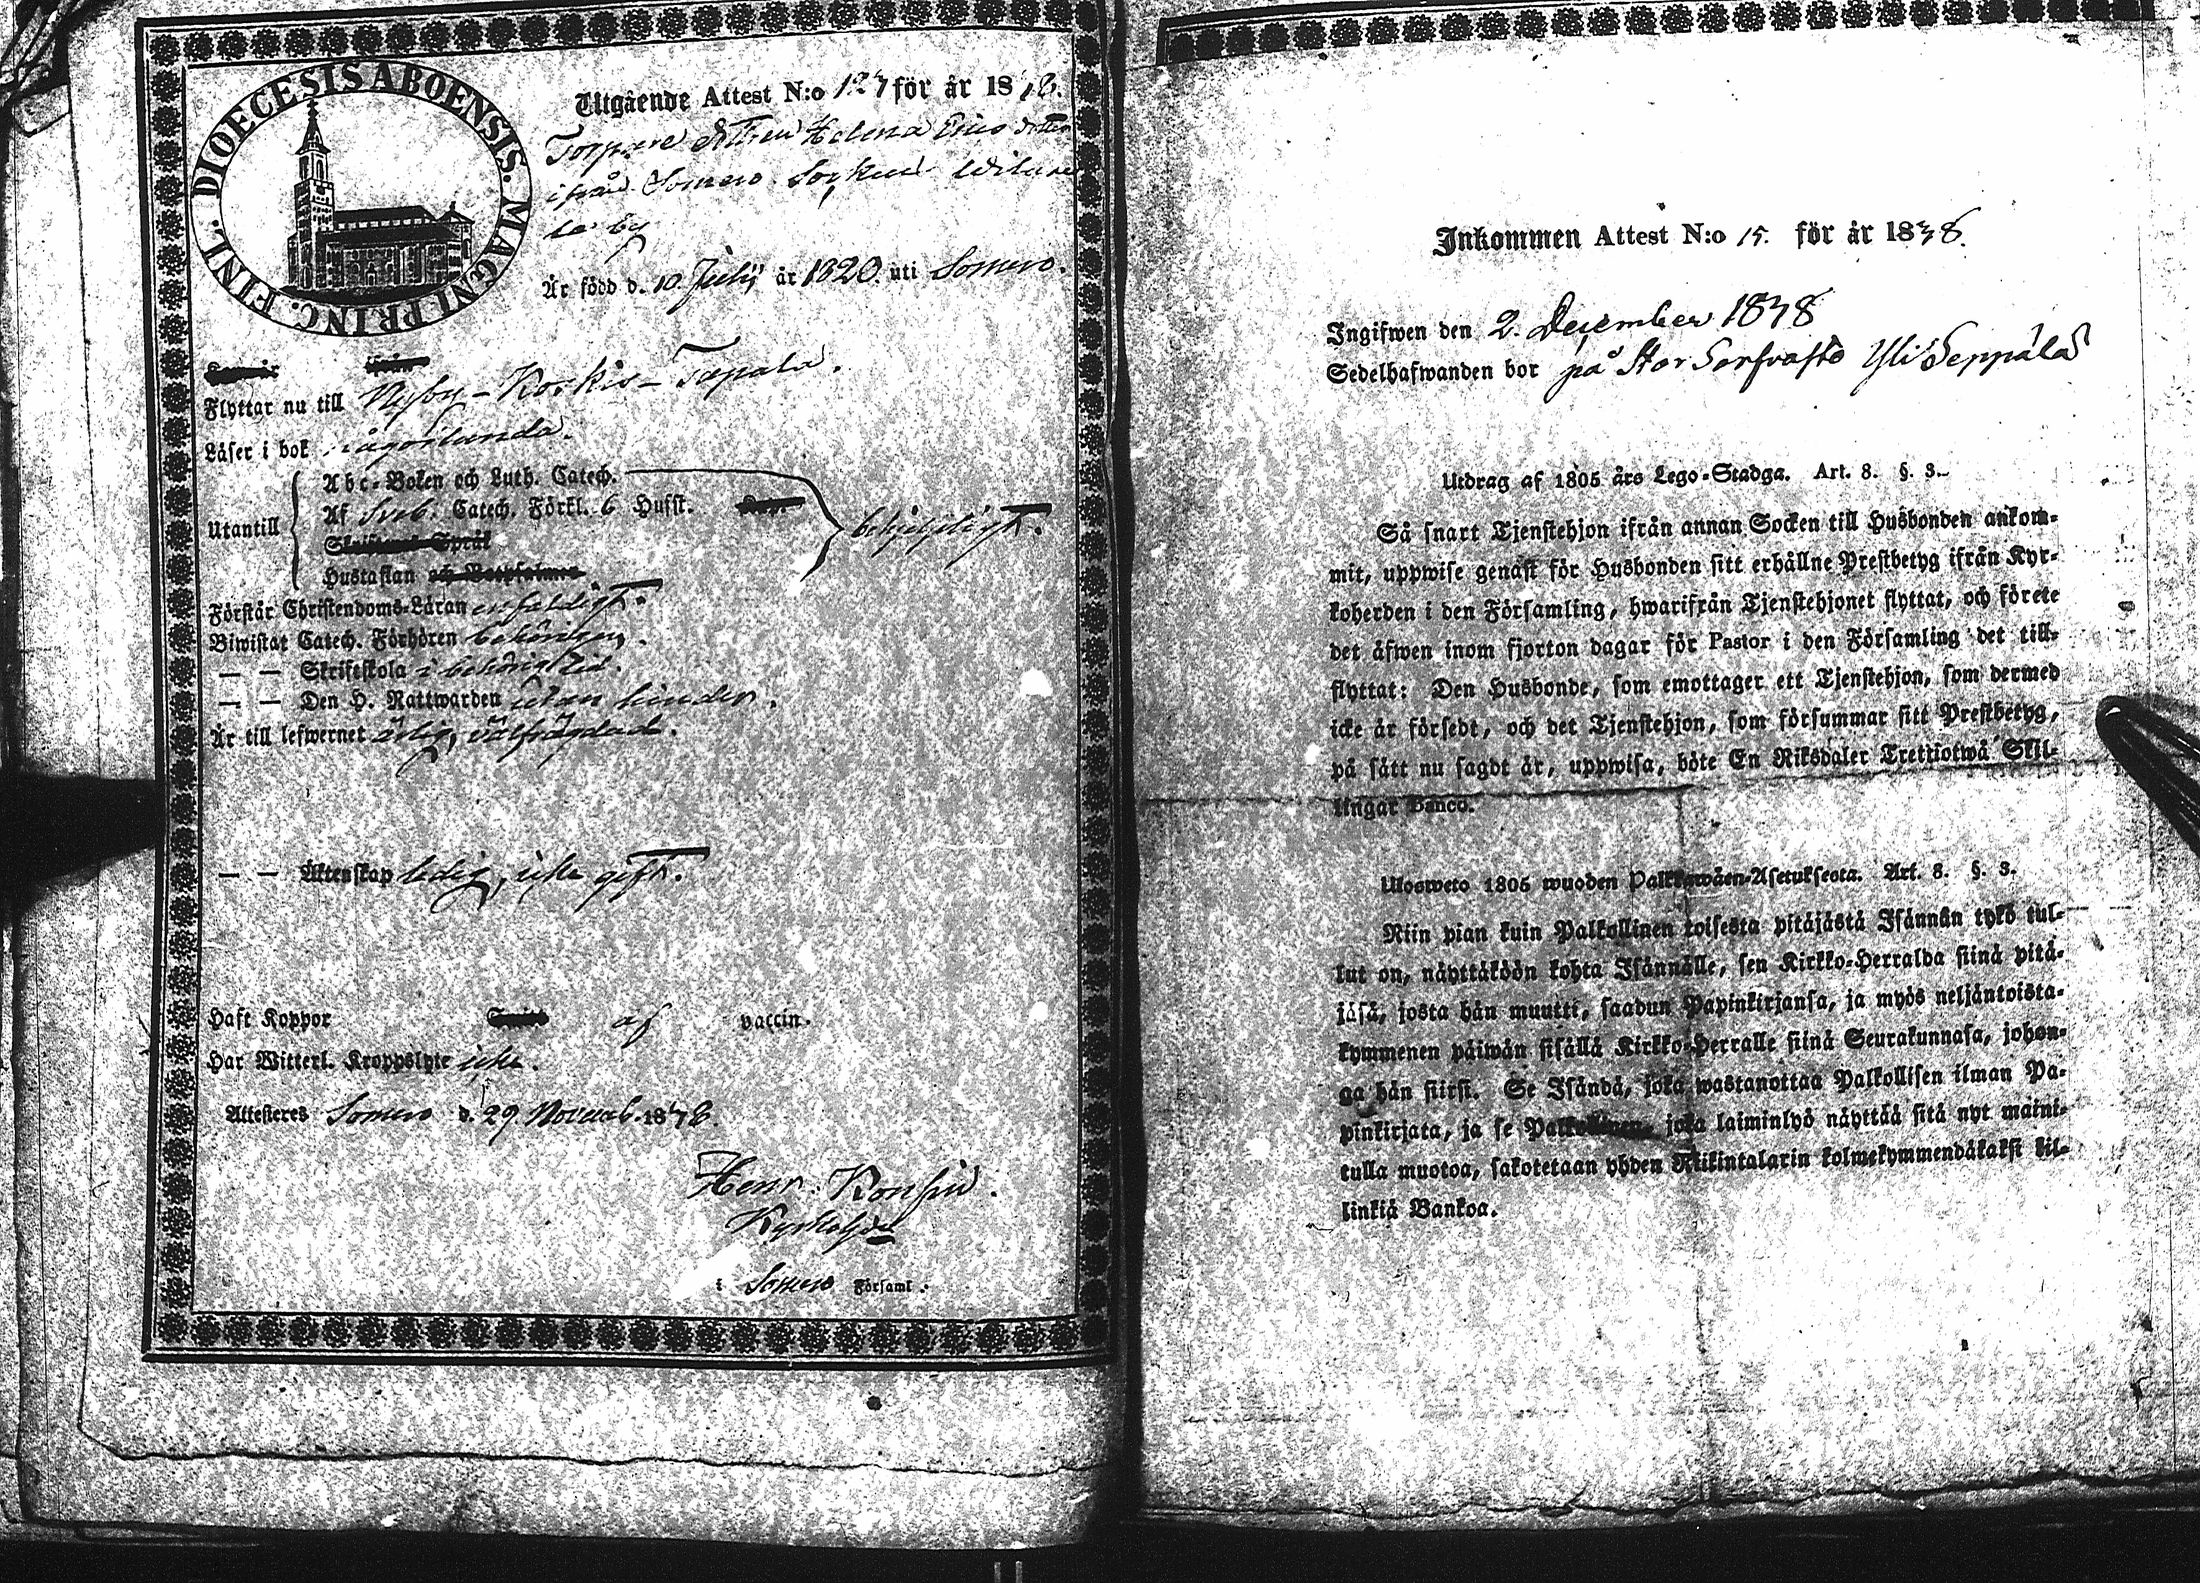 DIOECESIS ABOENSIS. MAGNI PRINC. FINL.
Utgående Attest N:o 127 för år 1848.
Torpare dottren Helena Ericsdotter
ifrån Somero Socken
la by
Är född d. 10 Julij år 1820. uti Somero.
Flyttar nu till Nyby-Koskis-Tapala.
Läser i bok någorlunda.
Abc-Boken och Luth. Catech.
Utantill Af Sveb. Catech. Förkl. 6 Hufst. behjelpligt.
Skriftenes Språk
Hustaflan och Botpsalmer
Förstår Christendoms-Läran enfaldigt.
Biwistat Catech. Förhören behörigen.
— — Skriftskola i behörig tid.
— — Den H. Nattwarden utan hinder.
Är till lefwernet ärlig, välfrägdad.
— — Äktenskap ledig, icke gift.
Haft Koppor af vaccin.
Har Witterl. Kroppslyte icke.
Attesteres Somero d. 29 Novemb. 1848.
Henr. Konsin.
Kyrkoh
i Somero Församl.
Inkommen Attest N:o 15. för år 1848.
Ingifwen den 2. December 1848
Sedelhafwanden bor på Stor Sorfvasto Yli Seppälä
Utdrag af 1805 års Lego-Stadga. Art. 8. §. 3.
Så snart Tjenstehjon ifrån annan Socken till Husbonden ankom-
mit, uppwise genast för Husbonden sitt erhållne Prestbetyg ifrån Kyr-
koherden i den Församling, hwarifrån Tjenstehjonet flyttat, och förete
det äfwen inom fjorton dagar för Pastor i den Församling det till-
flyttat: Den Husbonde, som emottager ett Tjenstehjon, som dermed
icke är försedt, och det Tjenstehjon, som försummar sitt Prestbetyg,
på sätt nu sagdt är, uppwisa, böte En Riksdaler Trettiotwå Skil-
lingar Banco.
Ulosweto 1805 wuoden Palkkawäen-Asetuksesta. Art. 8. §. 3.
Niin pian kuin Palkollinen toisesta pitäjästä Isännän tykö tul-
lut on, näyttäköön kohta Isännälle, sen Kirkko-Herralda siinä pitä-
jäsä, josta hän muutti, saadun Papinkirjansa, ja myös neljäntoista-
kymmenen päiwän sisällä Kirkko-Herralle siinä Seurakunnasa, johon-
ga hän siirsi. Se Isändä, joka wastanottaa Palkollisen ilman Pa-
pinkirjata, ja se Palkollinen, joka laiminlyö näyttää sitä nyt maini-
tulla muotoa, sakotetaan yhden Riikintalarin kolmekymmendäkaksi kil-
linkiä Bankoa.